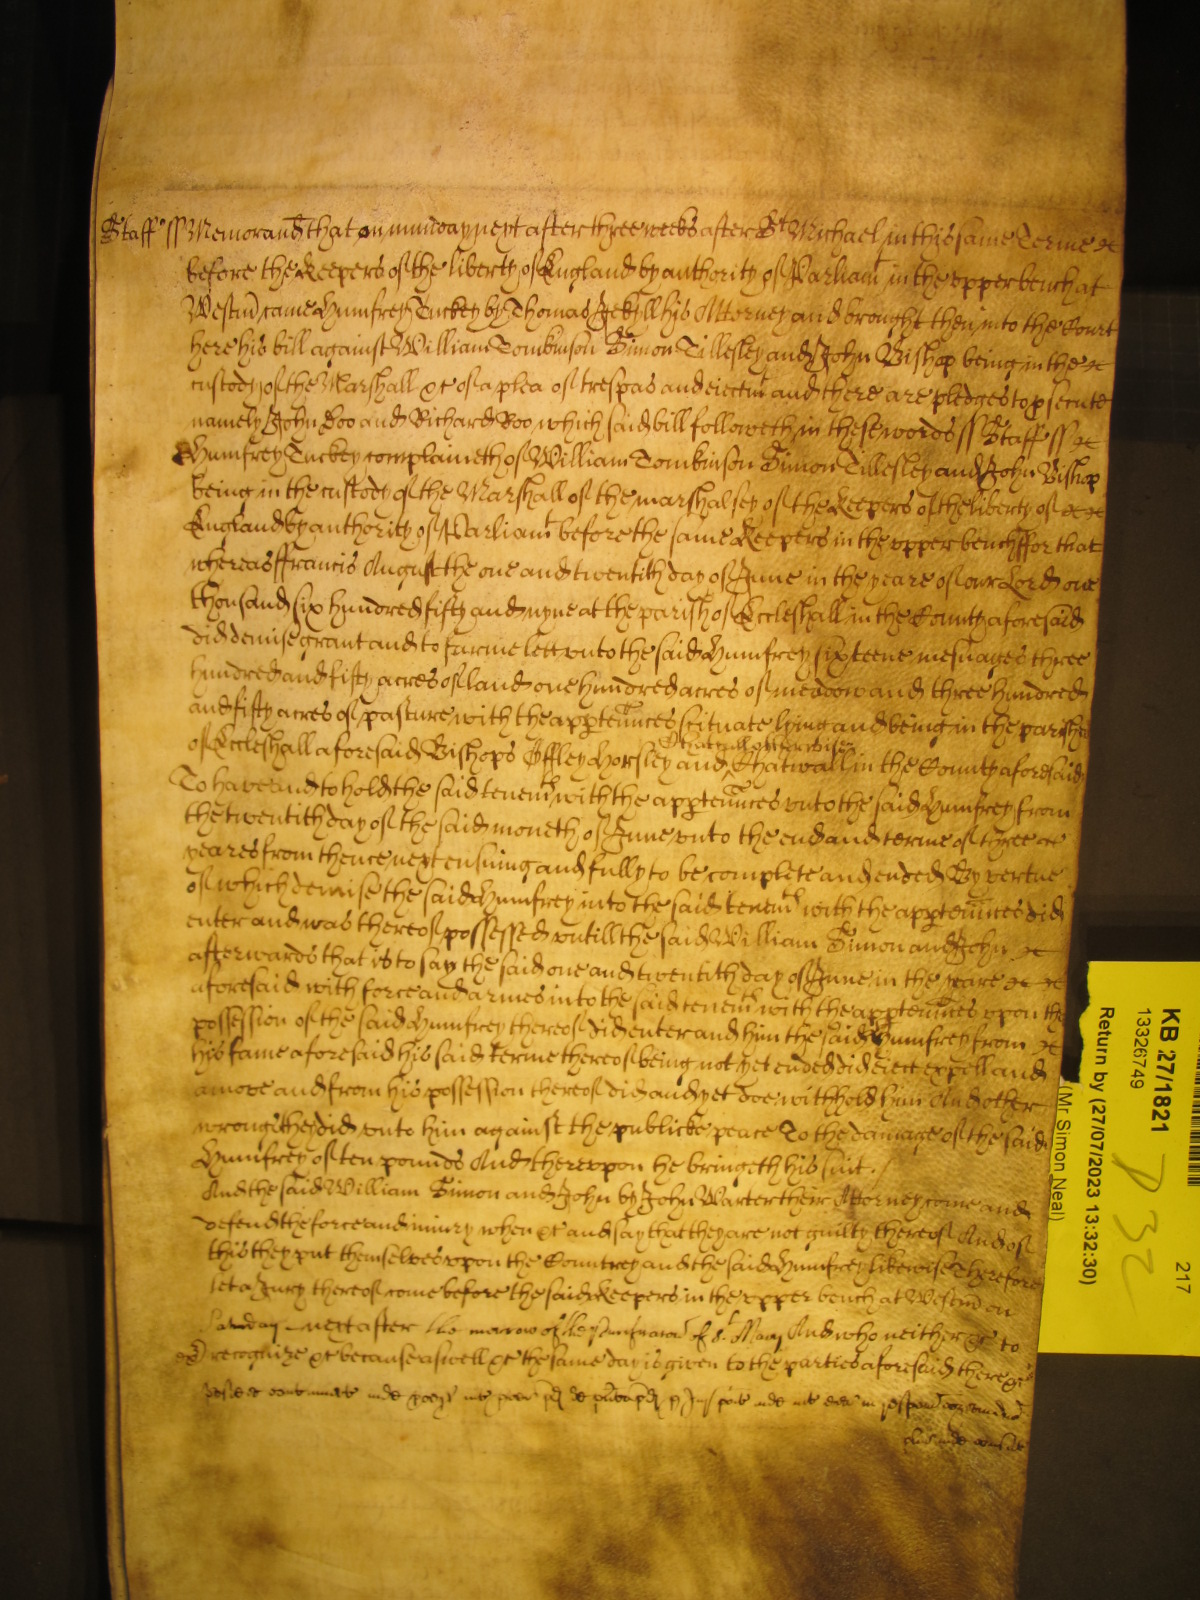 Staff ss Memorand that on munday next after three weeks after St Michael in this same Terme
before the Keepers of the liberty of England by authority of Parliamt in the upper bench at
Westm came Humfrey Tuckey by Thomas Jekyll his Attorney and brought then into the Court
here his bill against William Tomkinson Simon Tillesley and John Bishop being in the
custody of the Marshall &c of a plea of trespas and eiectm and there are pledges to psecute
namely John Doo and Richard Roo which said bill followeth in these words ss Staff ss
Humfrey Tuckey complaineth of William Tomkinson Simon Tillesley and John Bishop
being in the custody of the Marshall of the marshalsey of the Keepers of the liberty of
England by authority of Parliamt before the same Keepers in the upper bench ffor that
whereas ffrancis August the one and twentith day of June in the yeare of our Lord one
thousand six hundred fifty and nyne at the parish of Eccleshall in the County aforesaid
did demise grant and to farme lett unto the said Humfrey sixteene mesuages three
hundred and fifty acres of land one hundred acres of meadow and three hundred
and fifty acres of pasture with the appertennces scituate lying and being in the parish
of Eccleshall aforesaid Bishops Offley Horsley and Chatwall otherwise Chatwall in the County aforesaid
To have and to hold the said tenemts with the appertennces unto the said Humfrey from
the twentith day of the said moneth of June unto the end and terme of three
yeares from thence next ensuing and fully to be complete and ended By vertue
of which demise the said Humfrey into the said tenemts with the appertennces did
enter and was thereof possessed untill the said William Simon and John
afterwards that is to say the said one and twentith day of June in the yeare
aforesaid with force and armes into the said tenemts with the appertennces upon the
possession of the said Humfrey thereof did enter and him the said Humfrey from
his farme aforesaid his said terme thereof being not yet ended did eiect expell and
amove and from his possession thereof did and yet doe withhold him And other
wrongs they did unto him against the publicke peace To the damage of the said
Humfrey of ten pounds And thereupon he bringeth his suit
And the said William Simon and John by John Warter their Attorney come and
defend the force and iniury when &c and say that they are not guilty thereof And of
this they put themselves upon the Countrey and the said Humfrey likewise Therefore
let a Jury thereof come before the said Keepers in the upper bench at Westm on
next after the morrow of the purificacon of St Mary And who neither &c to
recognize &c because aswell &c the same day is given to the parties aforesaid there &c
KB 27/1821
13326749
217
Return by (27/07/2023 13:32:30)
(Mr Simon Neal)